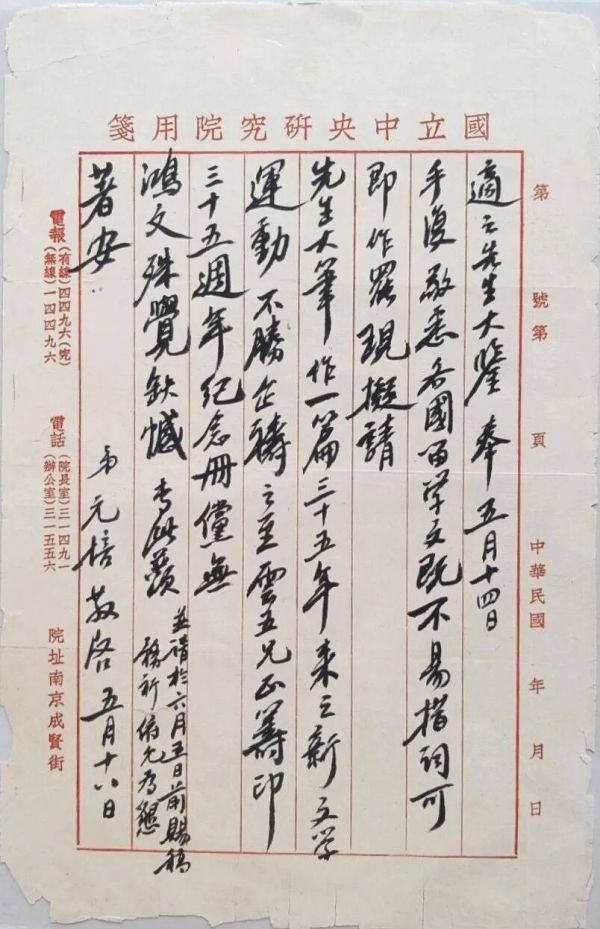 國立中央研究院用箋
第 號第 頁 中華民國 年 月 日
適之先生大鑒奉五月十四日
手復敬悉各國留學文既不易措詞可
即作罷現擬請
先生大筆作一篇三十五年來之新文學
運動不勝企禱之至雲五兄正籌印
三十五週年紀念冊儻無
鴻文殊覺缺憾專此羨
並請於六月五日前賜稿
務祈俯允為懇
著安
弟元培敬啓五月十八日
電報(有線)四四九六(究)
(無線)一四四九六
電話(院長室)三一四九一
(辦公室)三一五五六
院址南京成賢街